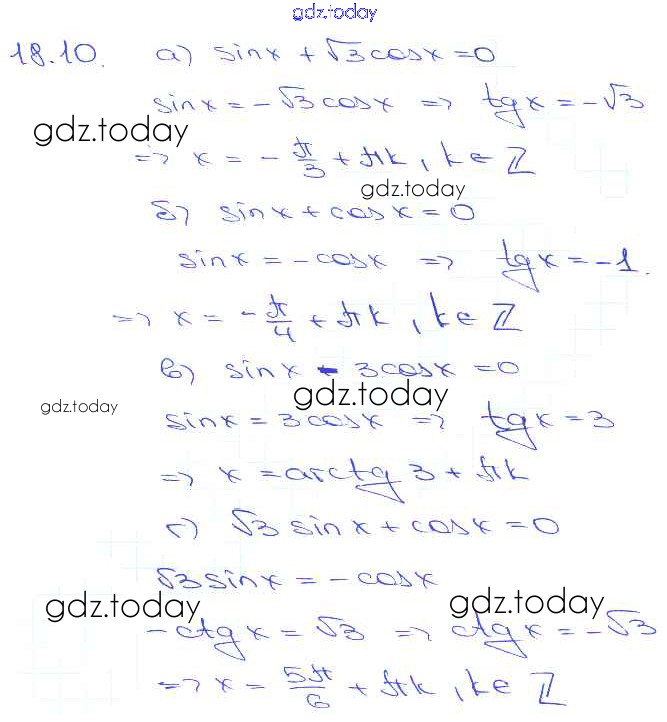 gdz.today
18.10. а) sinx + √3 cosx = 0
sinx = - √3 cosx => tgx = - √3
gdz.today
=> x = - π/3 + πk, k ∈ ℤ
gdz.today
б) sinx + cosx = 0
sinx = - cosx => tgx = -1.
=> x = - π/4 + πk, k ∈ ℤ
в) sinx - 3cosx = 0
gdz.today
gdz.today
sinx = 3cosx => tgx = 3
=> x = arctg 3 + πk
г) √3 sinx + cosx = 0
√3 sinx = - cosx
gdz.today
gdz.today
-ctgx = √3 => ctgx = - √3
=> x = 5π/6 + πk, k ∈ ℤ